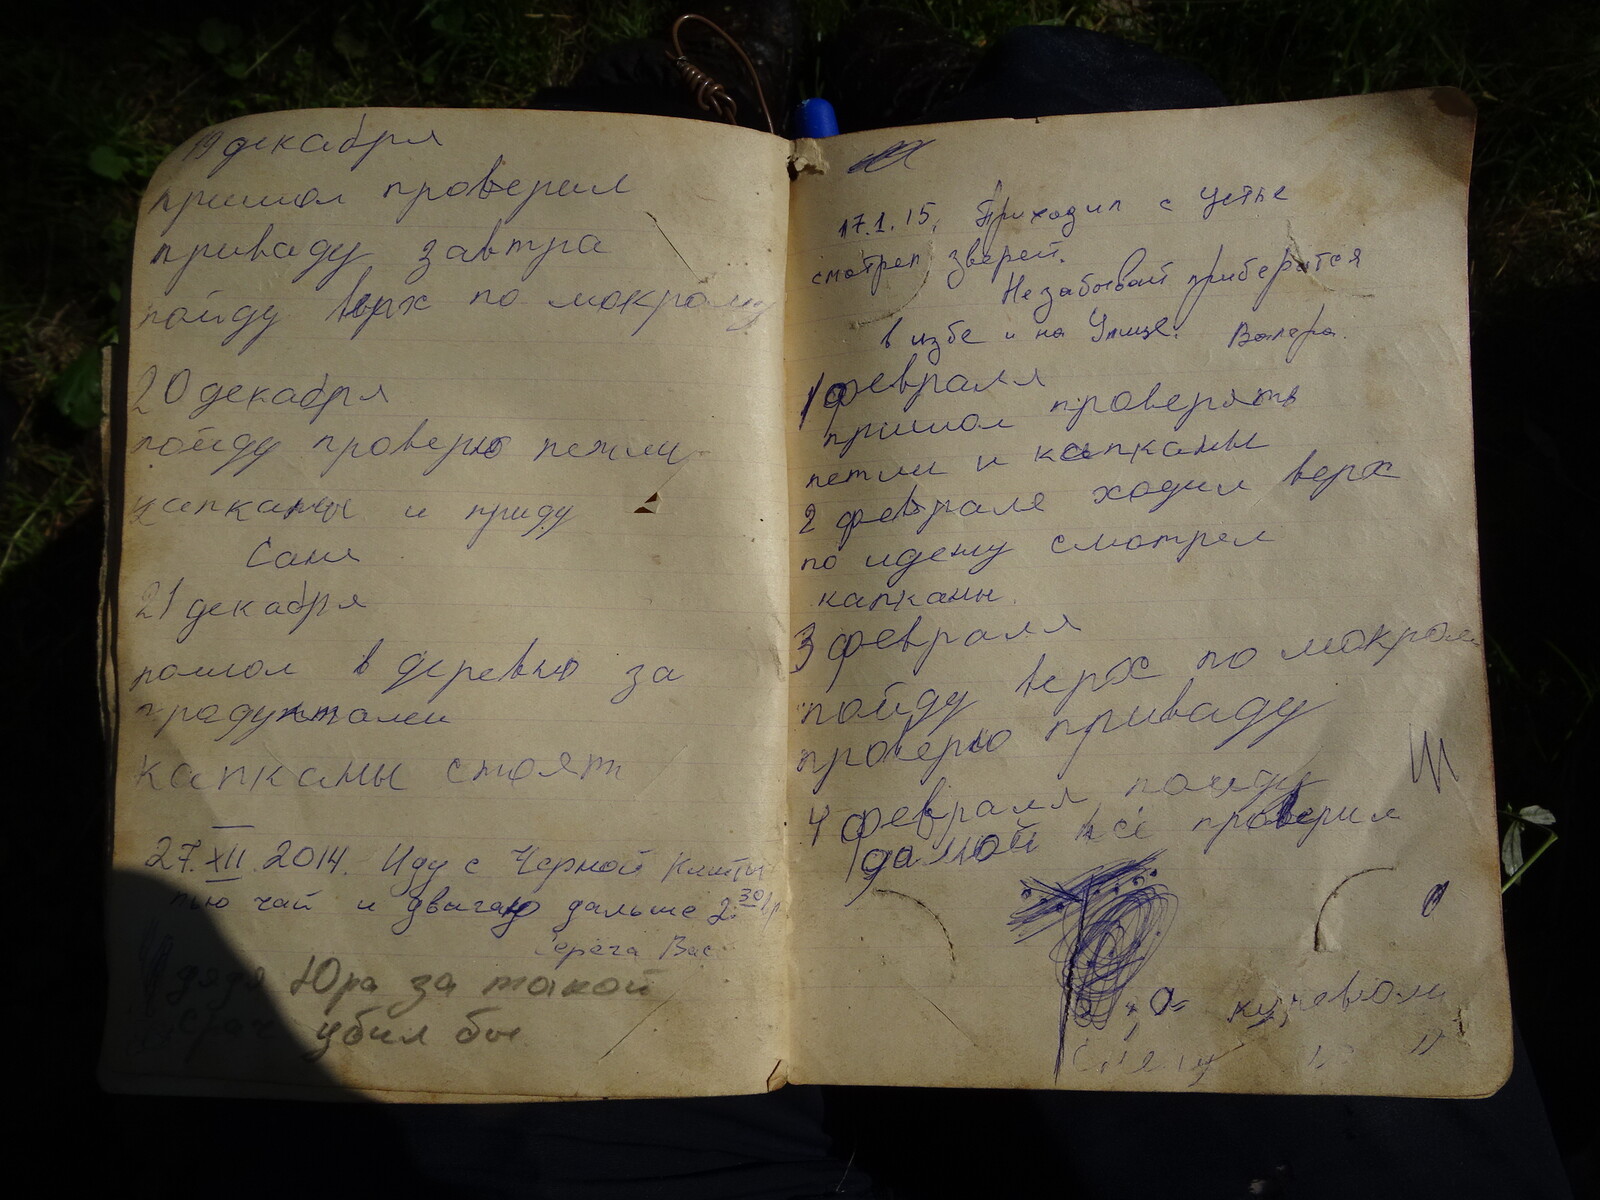 19 декабря
пришол проверил
приваду завтра
пойду верх по мокрому
20 декабря
пойду проверю петли
капканы и приду
Саня
21 декабря
пошол в деревню за
продуктами
капканы стоят
27.XII.2014. Иду с Черной
пью чай и двигаю дальше 2 30
Серега Вас
дядя Юра за такой
срач убил бы
17.1.15. Приходил с Устье
смотрел зверей.
Не забывай прибератся
в избе и на Улице. Валера.
1 февраля
пришол проверять
петли и капканы
2 февраля ходил верх
по смотрел
капканы
3 февраля
пойду верх по мокрому
проверю приваду
4 февраля пойду
дамой всё проверил